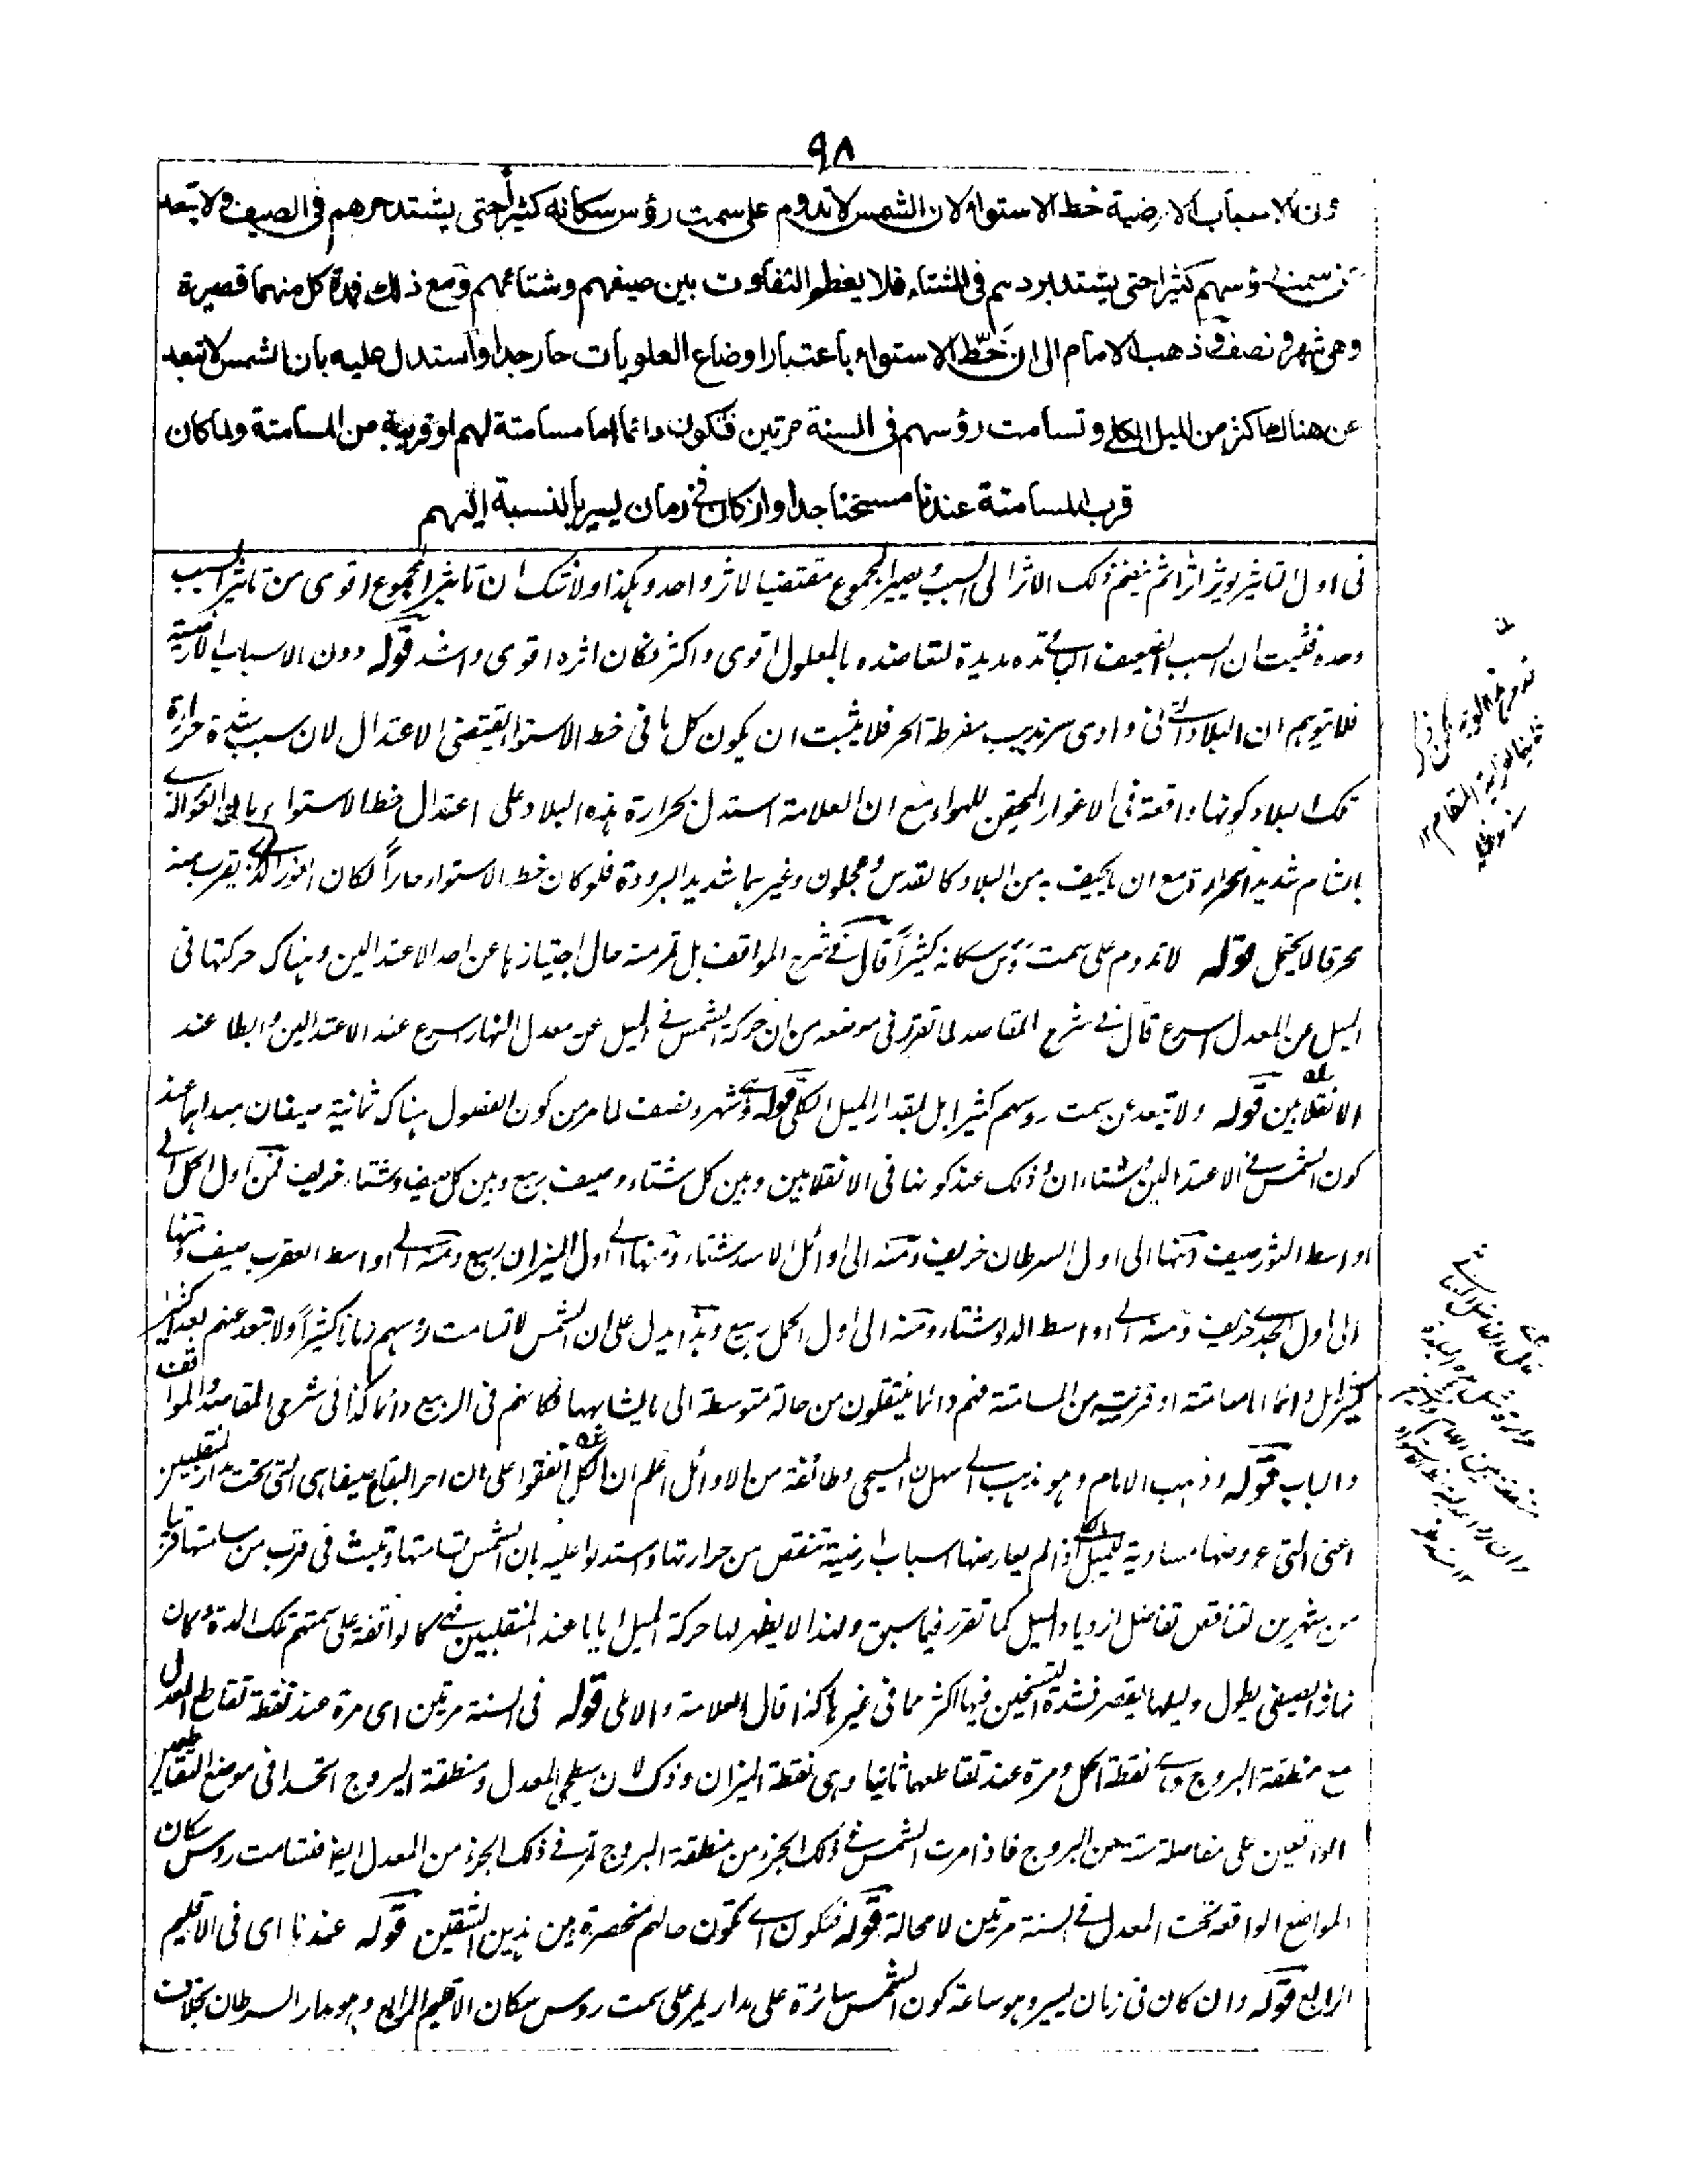 ٩٨
دون الاسباب الارضية خط الاستواء لان الشمس لا تدوم على سمت رؤس سكانه كثيرا حتى يشتد حرهم فى الصيف ولا تبعد
عن سمت رؤسهم كثيرا حتى يشتد بردهم فى الشتاء فلا يعظم التفاوت بين صيفهم وشتائهم ومع ذلك فمدة كل منهما قصيرة
وهى شهر ونصف وذهب الامام الى ان خط الاستواء باعتبار اوضاع العلويات حار جدا واستدل عليه بان الشمس لا تبعد
عن هناك اكثر من الميل الكلى وتسامت رؤسهم فى السنة مرتين فتكون دائما اما مسامتة لهم او قريبة من المسامتة ولما كان
قرب المسامتة عندنا مسخنا جدا وان كان فى زمان يسير بالنسبة اليهم
فى اول التاثير يوثر اثرا ثم ينضم ذلك الاثر الى السبب ويصير المجموع مقتضيا لاثر واحد وهكذا ولا شك ان تاثير المجموع اقوى من تاثير السبب
وحده فثبت ان السبب الضعيف الباقى مدة مديدة لتعاضده بالمعلول اقوى واكثر فكان اثره اقوى واشد قوله دون الاسباب الارضية
فلا يتوهم ان البلاد التى فى وادى سرنديب مفرطة الحر فلا يثبت ان يكون كل ما فى خط الاستواء يقتضى الاعتدال لان سبب شدة حرارة
تلك البلاد كونها واقعة فى الاغوار المحقن للهواء مع ان العلامة استدل بحرارة هذه البلاد على اعتدال خط الاستواء بان الغور الذى
بالشام شديد الحرارة مع ان ما يحيف به من البلاد كالقدس وعجلون وغيرهما شديد البرودة فلو كان خط الاستواء حاراً لكان الغور الذى يقرب منه
محرقا لا يحتمل قوله لا تدوم على سمت رؤس سكانه كثيراً قال فى شرح المواقف بل تمر منه حال اجتيازها عن احد الاعتدالين وهناك حركتها فى
الميل عن المعدل اسرع قال فى شرح المقاصد لما تقرر فى موضعه من ان حركة الشمس فى الميل عن معدل النهار اسرع عند الاعتدالين وابطا عند
الانقلابين قوله ولا تبعد عن سمت روسهم كثيرا بل بمقدار الميل الكلى قوله وهى شهر ونصف لما مر من كون الفصول هناك ثمانية صيفان مبداهما عند
كون الشمس فى الاعتدالين وشتاءان وذلك عند كونها فى الانقلابين وبين كل شتاء وصيف ربيع وبين كل صيف وشتاء خريف فمن اول الحمل الى
اواسط الثور صيف ومنها الى اول السرطان خريف ومنه الى اوائل الاسد شتاء ومنها الى اول الميزان ربيع ومنه الى اواسط العقرب صيف ومنها
الى اول الجدى خريف ومنه الى اواسط الدلو شتاء ومنه الى اول الحمل ربيع وهذا يدل على ان الشمس لا تسامت روسهم زمانا كثيراً ولا تبعد عنهم بعدا
كثيرا بل دائما اما مسامتة او قريبة من المسامتة فهم دائما ينتقلون من حالة متوسطة الى ما يشابهها فكانهم فى الربيع دائما كذا فى شرحى المقاصد والمواقف
والباب قوله وذهب الامام وهو مذهب ابى سهل المسيحى وطائفة من الاوائل اعلم ان الكل اتفقوا على ان احر البقاع صيفا هى التى تحت مدار المنقلبين
اعنى التى عروضها مساوية للميل الكلى اذا لم يعارضها اسباب ارضية تنقص من حرارتها واستدلوا عليه بان الشمس تسامتها وتلبث فى قرب من مسامتتها قريبا
من شهرين لتناقص تفاضل ازدياد الميل كما تقرر فيما سبق ولهذا لا يظهر لها حركة الميل اياما عند المنقلبين فهى كالواقفة على سمتهم تلك المدة وكان
نهارها الصيفى يطول وليلها يقصر فشدة التسخين فيها اكثر مما فى غيرها كذا قال العلامة والاملى قوله فى السنة مرتين اى مرة عند نقطة تقاطع المعدل
مع منطقة البروج وهى نقطة الحمل ومرة عند تقاطعهما ثانيا وهى نقطة الميزان وذلك لان سطحى المعدل ومنطقة البروج اتحدا فى موضع التقاطعين
الواقعين على مفاصلة ستة من البروج فاذا مرت الشمس فى ذلك الجزء من منطقة البروج تمر فى ذلك الجزء من المعدل ايضا فتسامت روس سكان
المواضع الواقعة تحت المعدل فى السنة مرتين لا محالة قوله فتكون اى تكون حالهم منحصرة بين هذين الشقين قوله عندنا اى فى الاقليم
الرابع قوله وان كان فى زمان يسير وهو ساعة كون الشمس سائرة على مدار يمر على سمت روس سكان الاقليم الرابع وهو مدار السرطان بخلاف